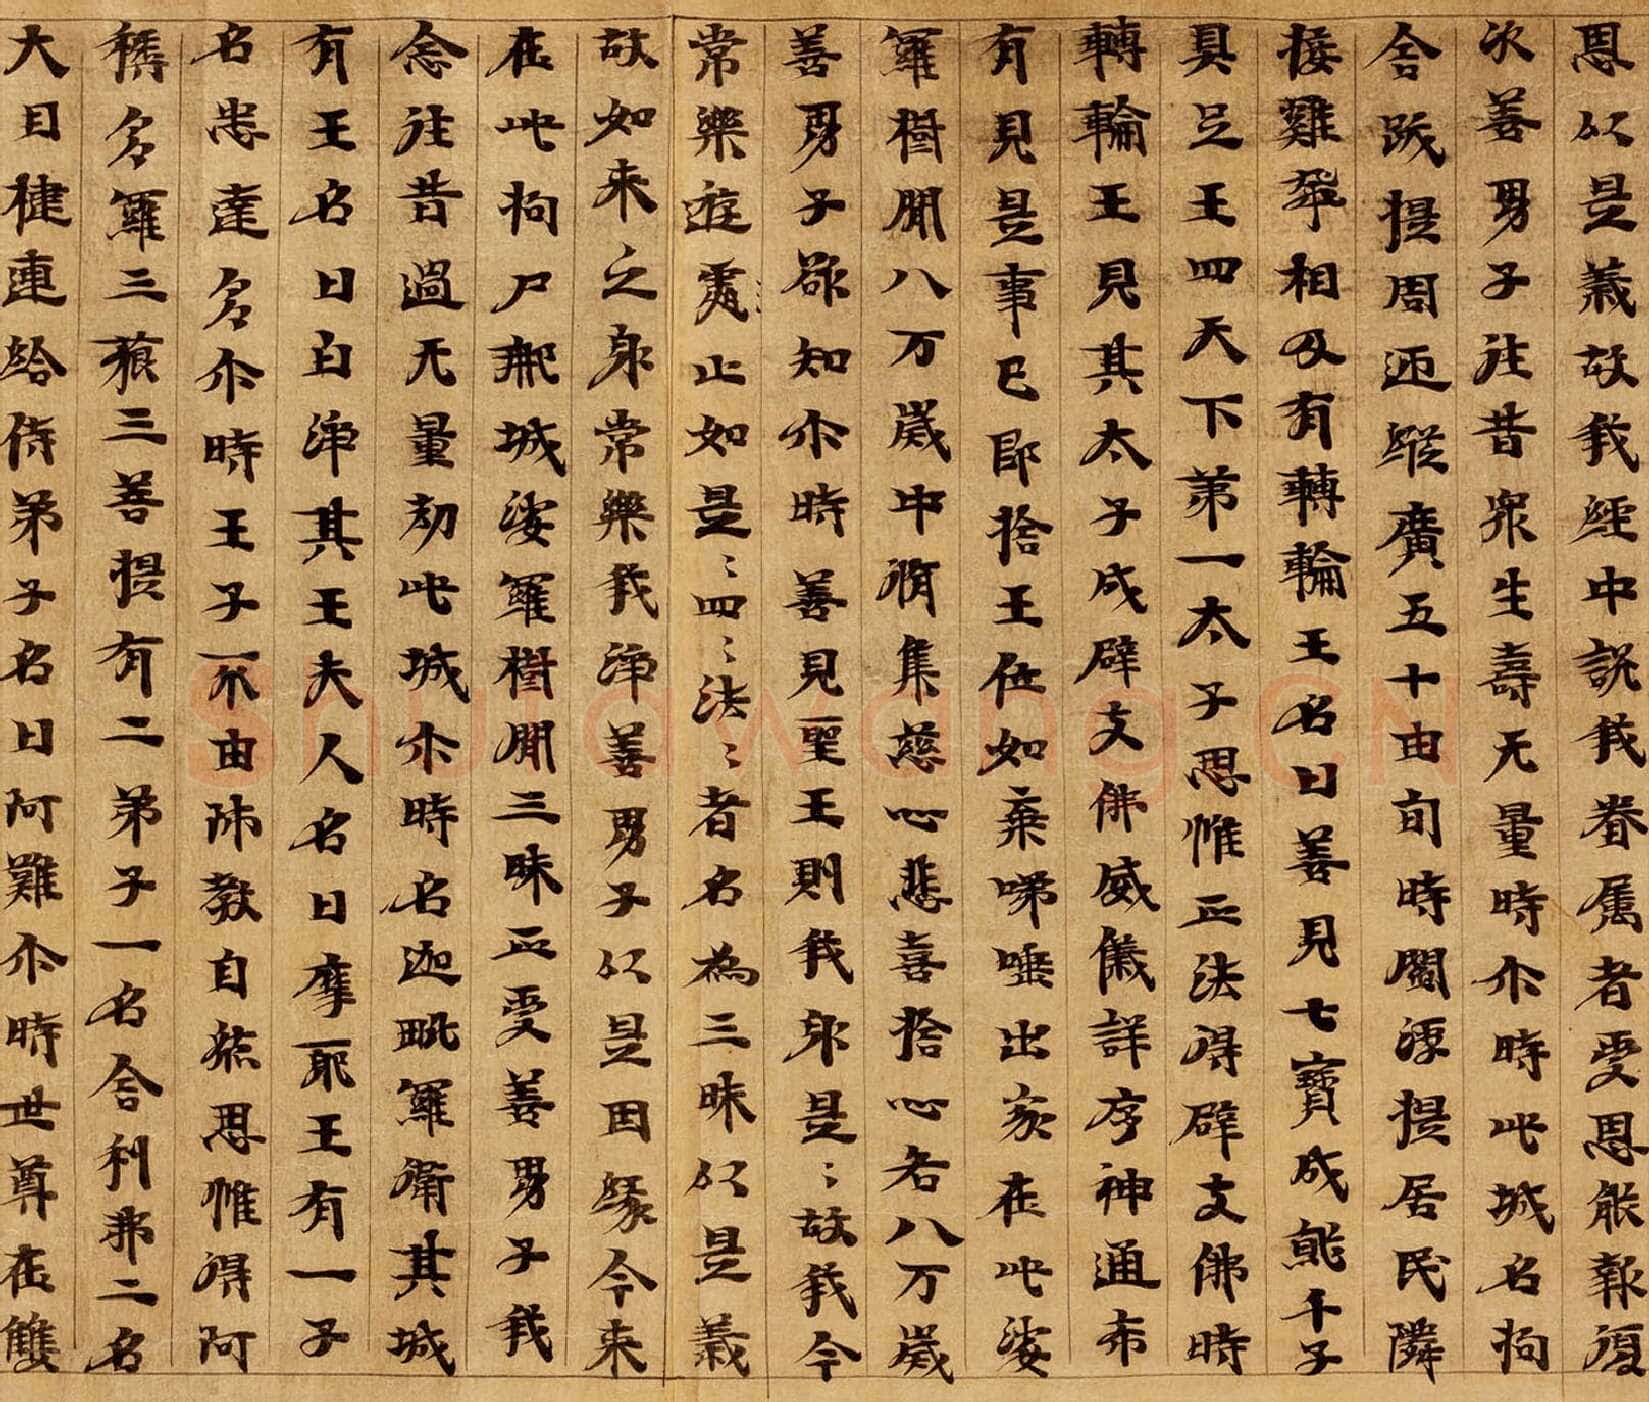 恩以是義故我經中説我眷属者受恩能報復
次善男子往昔衆生壽无量時尒時此城名拘
舍跋提周迊縱廣五十由旬時閻浮提居民隣
接雞飛相及有轉輪王名曰善見七寶成就千子
具足王四天下第一太子思惟正法得辟支佛時
轉輪王見其太子成辟支佛威儀詳序神通希
有見是事已即捨王位如棄㖒唾出家在此娑
羅樹間八万歲中脩集慈心悲喜捨心各八万歲
善男子欲知尒時善見聖王則我身是〻故我今
常樂遊處止如是〻四〻法〻者名為三昧以是義
故如来之身常樂我淨善男子以是因緣今来
在此拘尸那城娑羅樹間三昧正受善男子我
念往昔過无量劫此城尒時名迦毗羅衛其城
有王名曰白淨其王夫人名曰摩耶王有一子
名悉達多尒時王子不由師教自然思惟得阿
耨多羅三藐三菩提有二弟子一名舍利弗二名
大目揵連給侍弟子名曰阿難尒時世尊在雙
Shufawang.CN